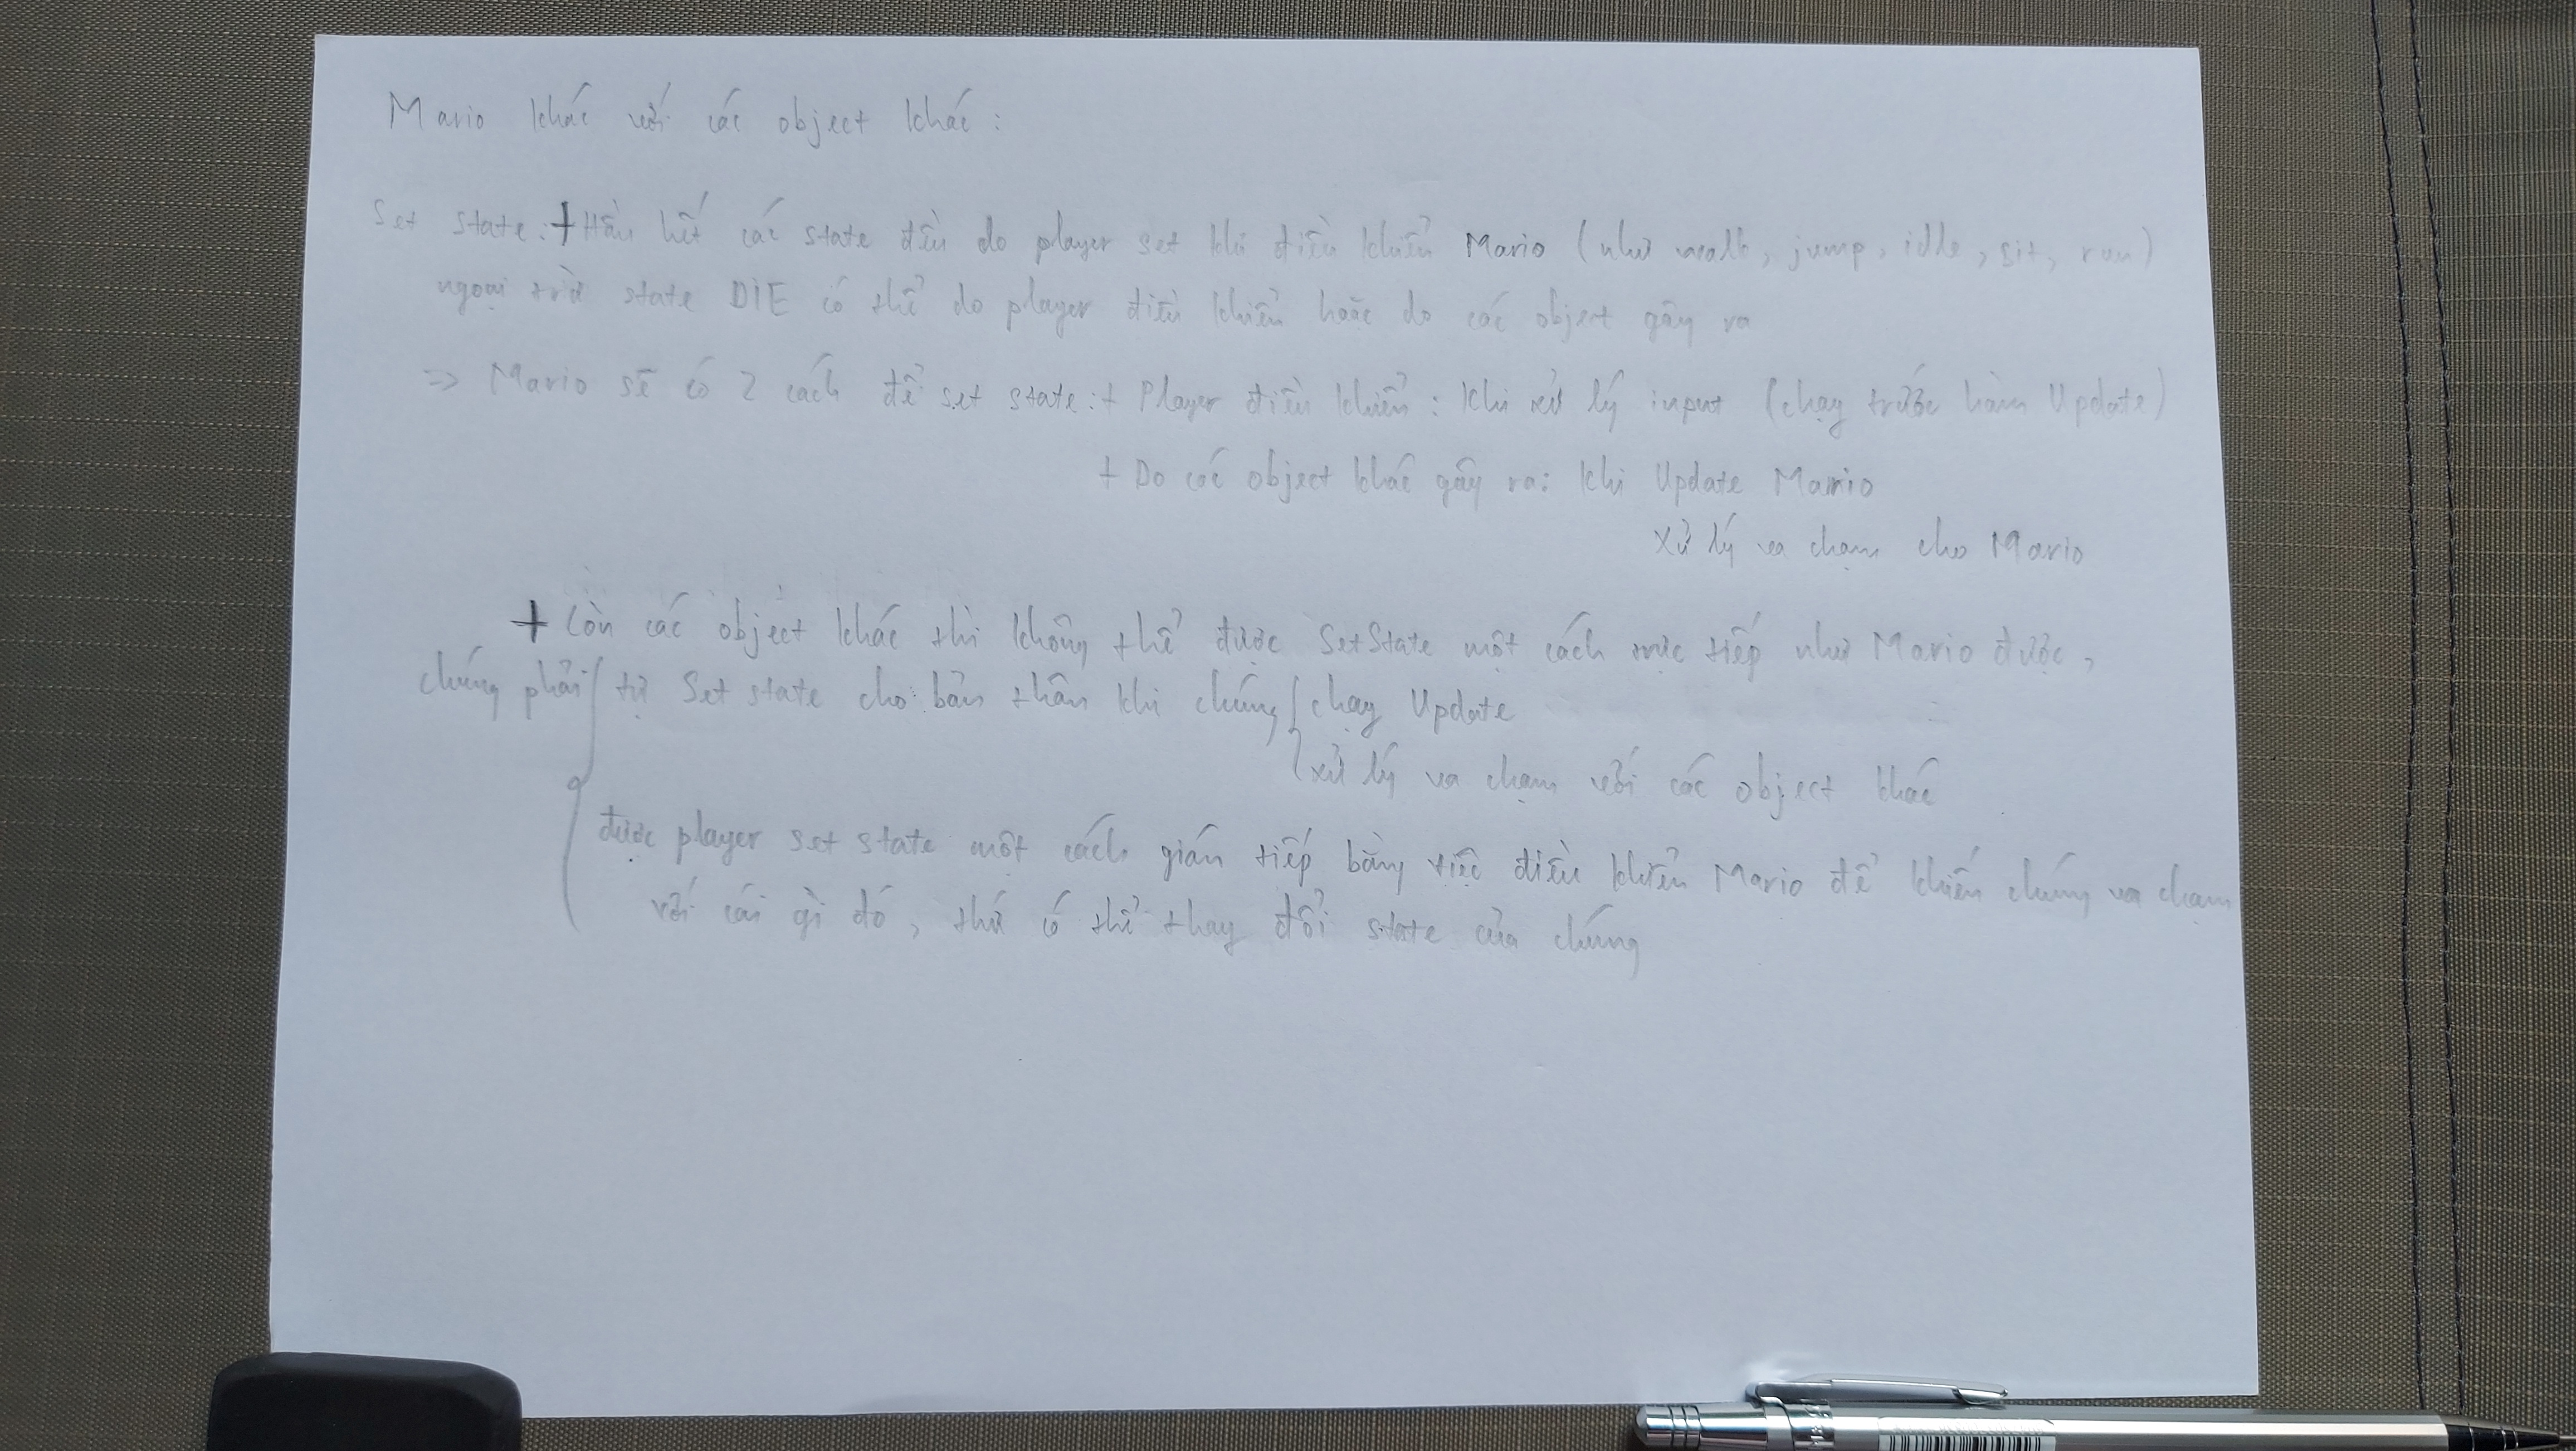 Mario khác với các object khác :
Set state : + Hầu hết các state đều do player set khi điều khiển Mario (như walk, jump, idle, sit, run)
ngoại trừ state DIE có thể do player điều khiển hoặc do các object gây ra
=> Mario sẽ có 2 cách để set state : + Player điều khiển : Khi xử lý input (chạy trước hàm Update)
+ Do các object khác gây ra : Khi Update Mario
Xử lý va chạm cho Mario
+ Còn các object khác thì không thể được SetState một cách trực tiếp như Mario được,
chúng phải tự Set state cho bản thân khi chúng chạy Update
xử lý va chạm với các object khác
được player set state một cách gián tiếp bằng việc điều khiển Mario để khiến chúng va chạm
với cái gì đó, thứ có thể thay đổi state của chúng